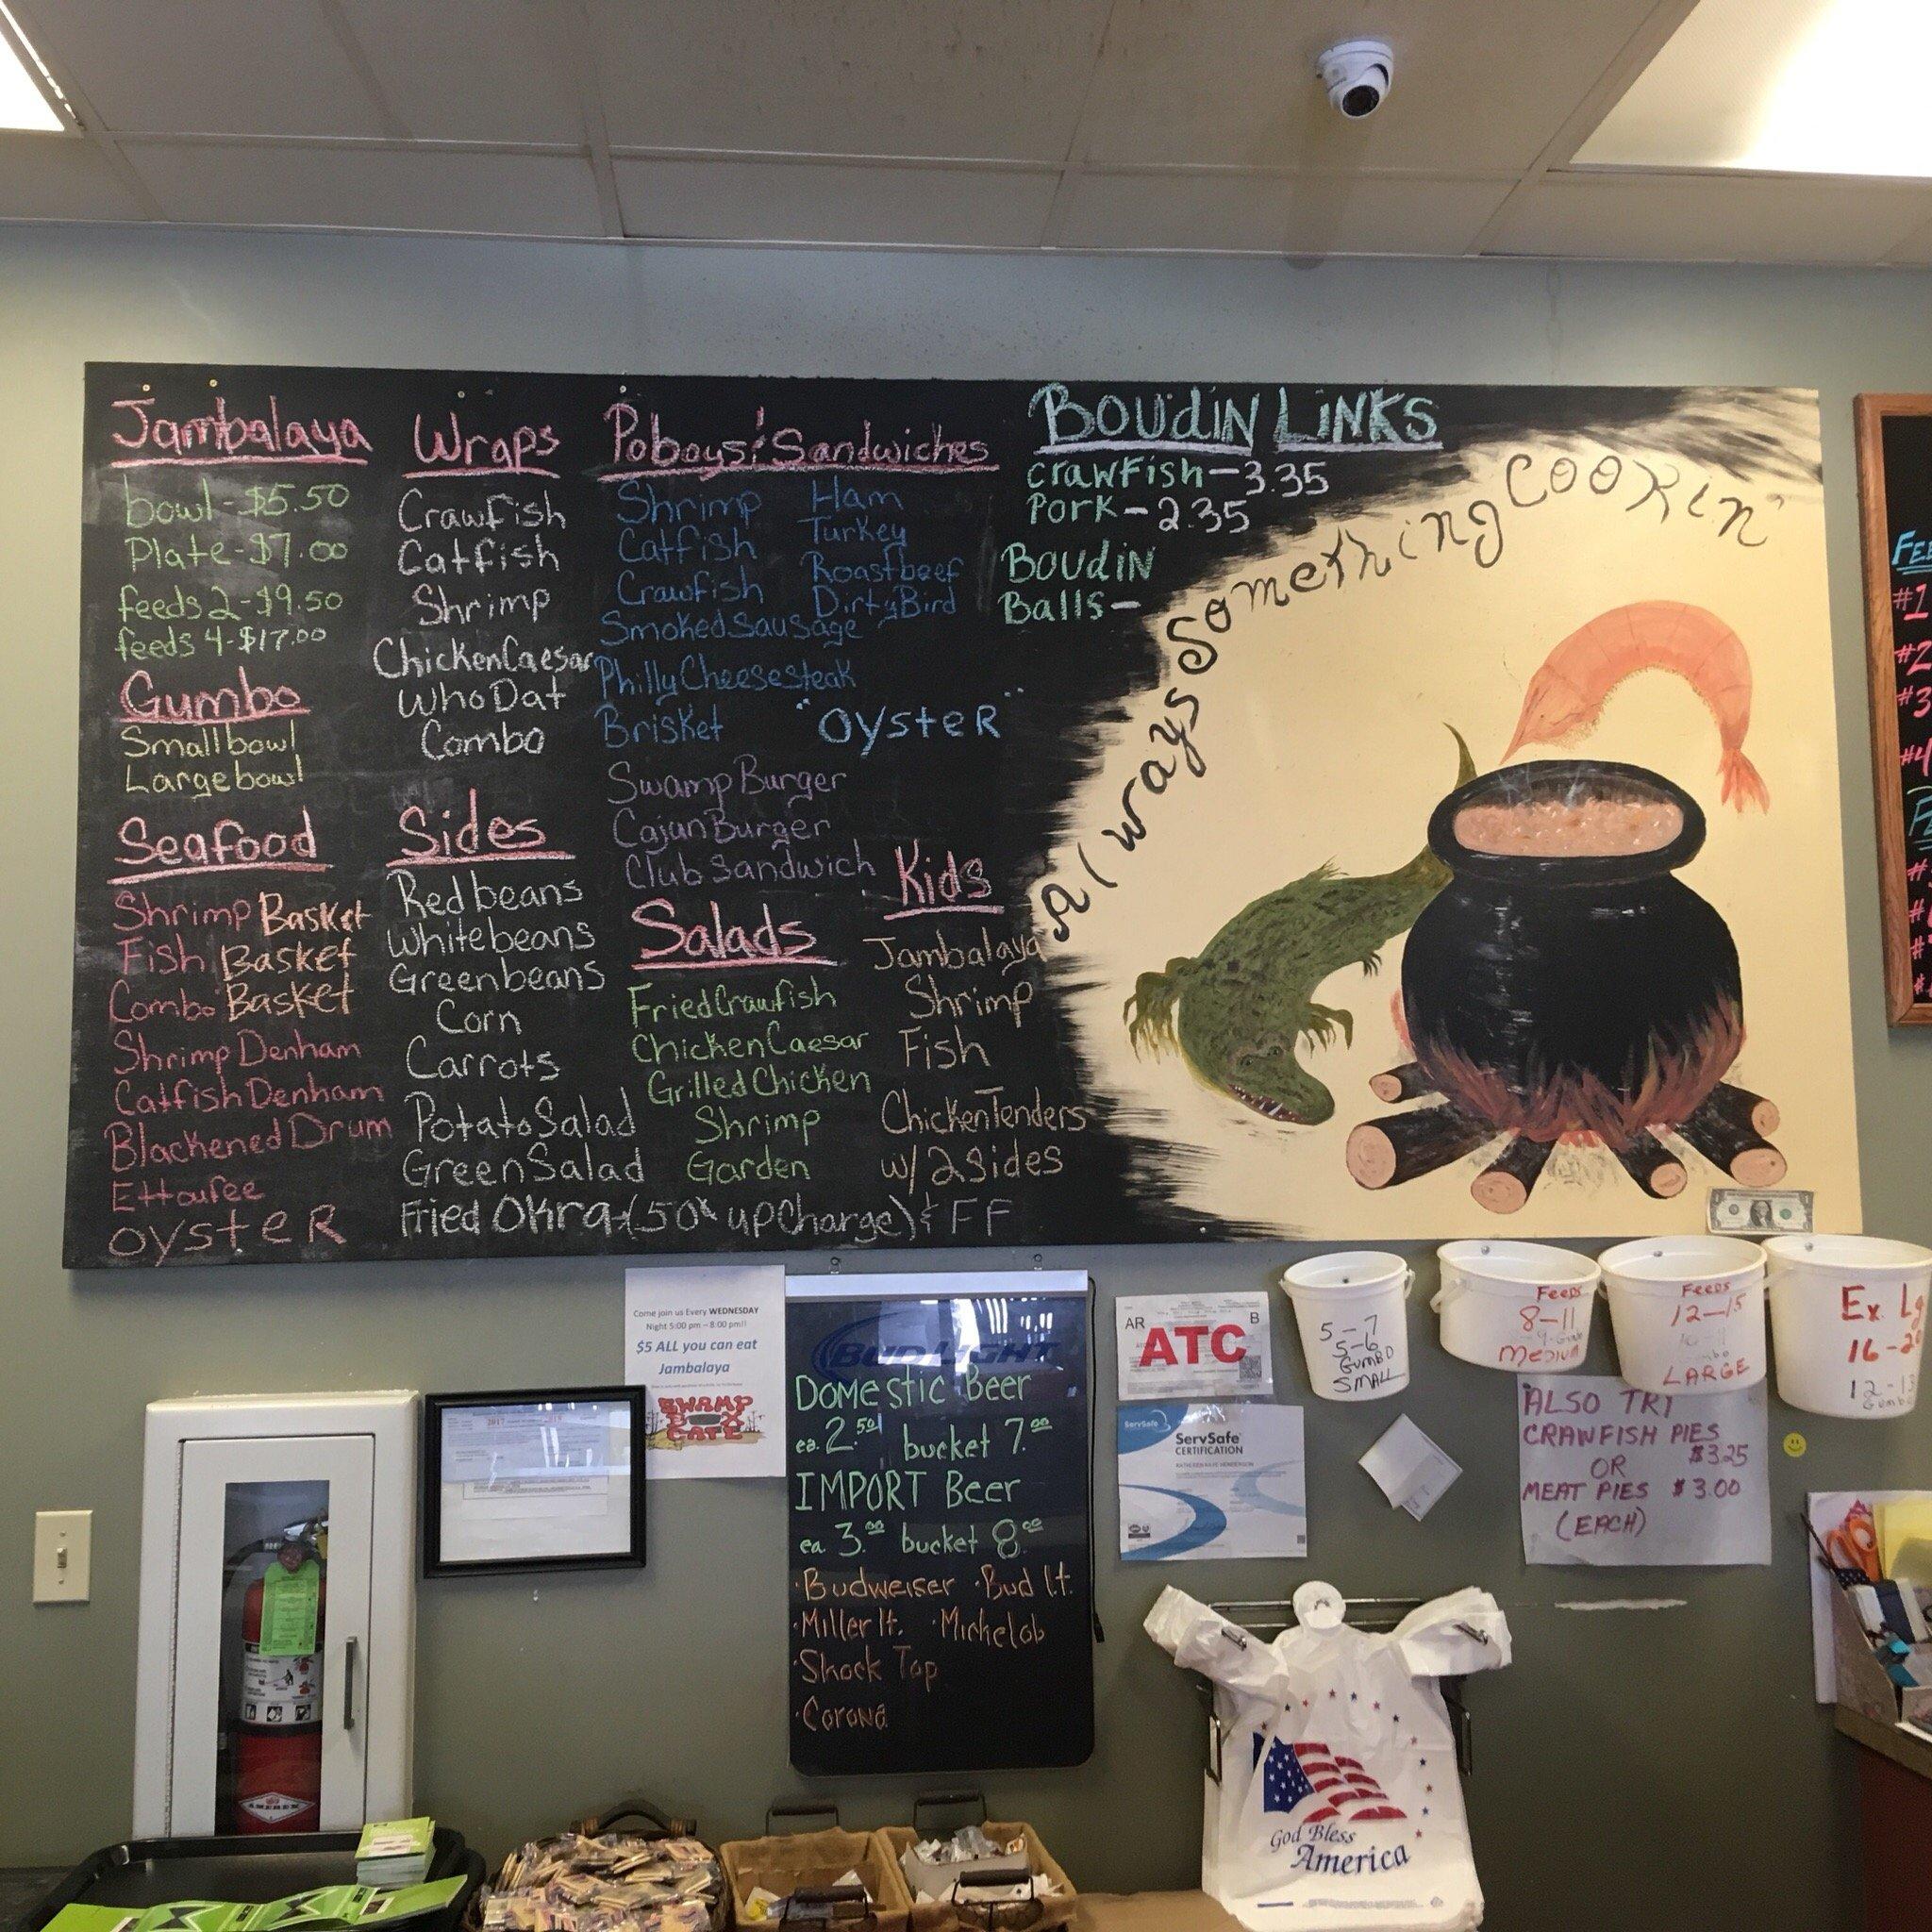 Jambalaya
bowl-$5.50
Plate-$7.00
feeds 2-$9.50
feeds 4-$17.00
Gumbo
Small bowl
Large bowl
Seafood
Shrimp Basket
Fish Basket
Combo Basket
Shrimp Denham
Catfish Denham
Blackened Drum
Ettoufee
OysteR
Wraps
Crawfish
Catfish
Shrimp
Chicken Caesar
Who Dat
Combo
Sides
Red beans
White beans
Green beans
Corn
Carrots
Potato Salad
Green Salad
Fried Okra (50¢ up Charge) & FF
Poboys & Sandwiches
Shrimp
Catfish
Crawfish
Smoked Sausage
Philly Cheesesteak
Brisket
Ham
Turkey
Roastbeef
Dirty Bird
"OysteR"
Swamp Burger
Cajun Burger
Club Sandwich
Salads
Fried Crawfish
Chicken Caesar
Grilled Chicken
Shrimp
Garden
Kids
Jambalaya
Shrimp
Fish
Chicken Tenders
w/ 2 sides
BOUdiN LiNKS
crawfish-3.35
Pork-2.35
BOUdiN
Balls-
Always Something Cookin'
#1
#2
#3
#4
Come join us Every WEDNESDAY
Night 5:00 pm – 8:00 pm!!
$5 ALL you can eat
Jambalaya
SWAMP
BOX
CAFE
BUD LIGHT
Domestic Beer
ea. 2.50 bucket 7.00
IMPORT Beer
ea. 3.00 bucket 8.00
·Budweiser ·Bud lt.
·Miller lt. ·Michelob
·Shock Top
·Corona
AR ATC B
ServSafe
ServSafe
CERTIFICATION
5-7
5-6
GUMBO
SMALL
FEEDS
8-11
MEDIUM
FEEDS
12-15
LARGE
Ex. Lg
16-2
12-1
Gumbo
ALSO TRY
CRAWFISH PIES
$3.25
OR
MEAT PIES $3.00
(EACH)
2017
AMEREX
God Bless
America